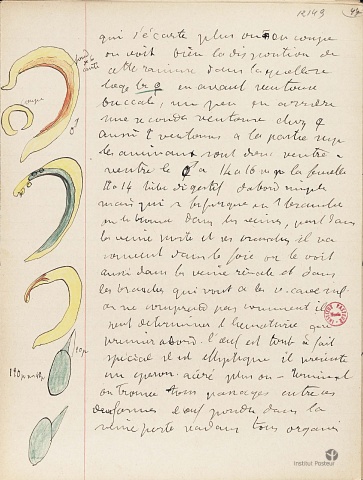 12149
44
qui s'écarte plus ou moins en coupe
on voit bien la disposition de
cette rainure dans laquelle se
loge la ♀ en avant ventouse
buccale, un peu en arrière
une seconde ventouse chez ♀
aussi 2 ventouses à la partie sup
les animaux sont donc ventre à
ventre le ♂ a 14 à 16 la femelle
tube digestif d'abord unique
mais qui se bifurque en 2 branches
on le trouve dans les veines, surtout dans
la veine porte et ses branches il va
rarement dans le foie on le voit
aussi dans la veine rénale et dans
les branches qui vont à la v. cave inf
on ne comprend pas comment il
peut déterminer l'hématurie qui
l'œuf est tout à fait
spécial il est elliptique il présente
un éperon acéré plus ou - terminal
on trouve tous passages entre ces
deux formes l'œuf pondu dans la
veine porte va dans tous organes
coupe
fond de la cavité
♂
♀
Institut Pasteur